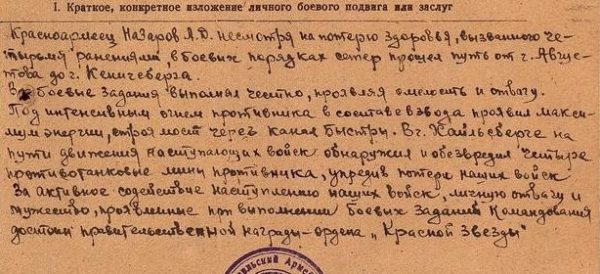 I. Краткое, конкретное изложение личного боевого подвига или заслуг
Красноармеец Назаров Л.Д. несмотря на потерю здоровья, вызванного че-
тырьмя ранениями, в боевых порядках сапер прошел путь от г. Авгус-
това до г. Кенигсберга.
Все боевые задания выполнял честно, проявляя смелость и отвагу.
Под интенсивным огнем противника в составе взвода проявил макси-
мум энергии, строя мост через канал Быстры. В г. Хайльсберге на
пути движения наступающих войск обнаружил и обезвредил четыре
противотанковые мины противника, упредив потери наших войск
За активное содействие наступлению наших войск, личную отвагу и
мужество, проявленные при выполнении боевых заданий Командования
достоин правительственной награды-ордена „Красной Звезды"